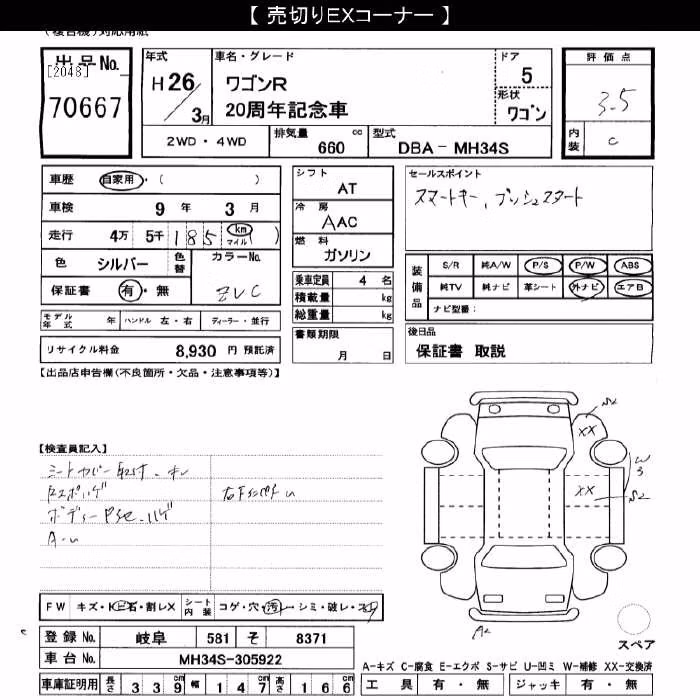 【 売切りEXコーナー 】
(複合機)対応用紙
出品No.
[2048]
70667
年式
H 26 / 3月
車名・グレード
ワゴンR
20周年記念車
ドア
5
形状
ワゴン
評価点
3.5
内装
C
2WD・4WD
排気量 660 cc
型式 DBA－MH34S
車歴 自家用・( )
車検 9 年 3 月
走行 4万 5千 185 km マイル ( )
色 シルバー 色替 カラーNo.
保証書 有・無 ZVC
モデル年式 年 ハンドル 左・右 ディーラー・並行
リサイクル料金 8,930 円 預託済
シフト
AT
冷房
AAC
燃料
ガソリン
乗車定員 4 名
積載量 kg
総重量 kg
書類期限
月 日
セールスポイント
スマートキー、プッシュスタート
装備品
S/R 純A/W P/S P/W ABS
純TV 純ナビ 革シート 外ナビ エアB
ナビ型番：
後日品
保証書 取説
【出品店申告欄(不良箇所・欠品・注意事項等)】
【検査員記入】
シートカバー取付
ボディー
A-U
XX
XX
W3
S2
A2
スペア
FW キズ・ヒ石・割レX シート内装 コゲ・穴・汚レ・シミ・破レ・スレ
登録No. 岐阜 581 そ 8371
車台No. MH34S-305922
車庫証明用 長さ 339cm 幅 147cm 高さ 166cm
A-キズ C-腐食 E-エクボ S-サビ U-凹ミ W-補修 XX-交換済
工具 有・無 ジャッキ 有・無